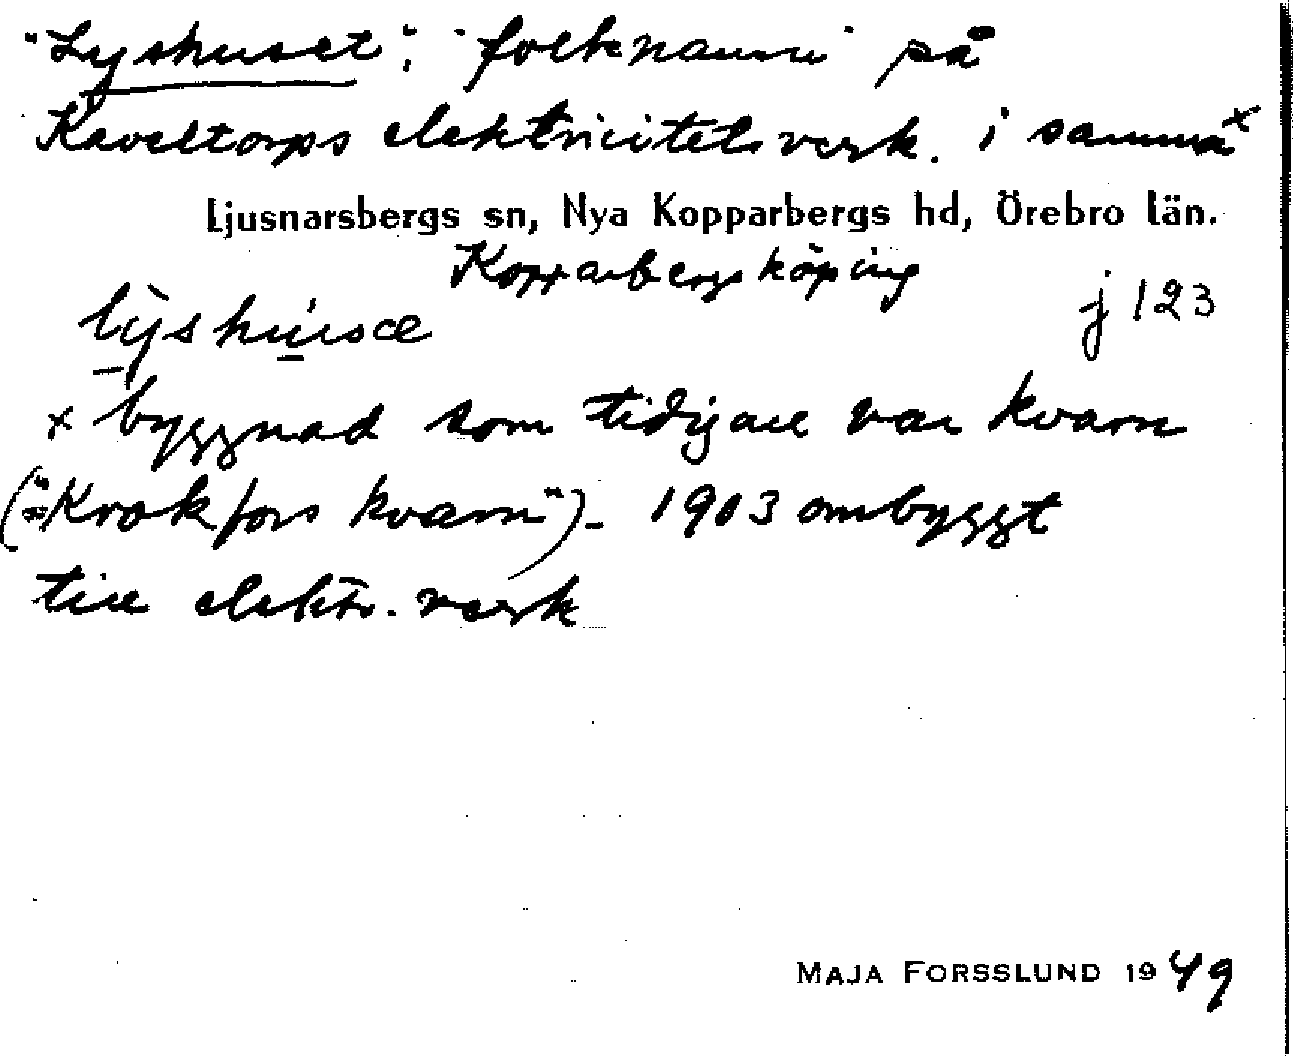 "Lyshuset"; "folknamn" på
Kaveltorps elektricitetsverk. i samma x
Ljusnarsbergs sn, Nya Kopparbergs hd, Örebro län.
Kopparbergs köping
lýshúsæ j 123
x byggnad som tidigare var kvarn
("Krokfors kvarn") - 1903 ombyggt
till elektr. verk
MAJA FORSSLUND 1949